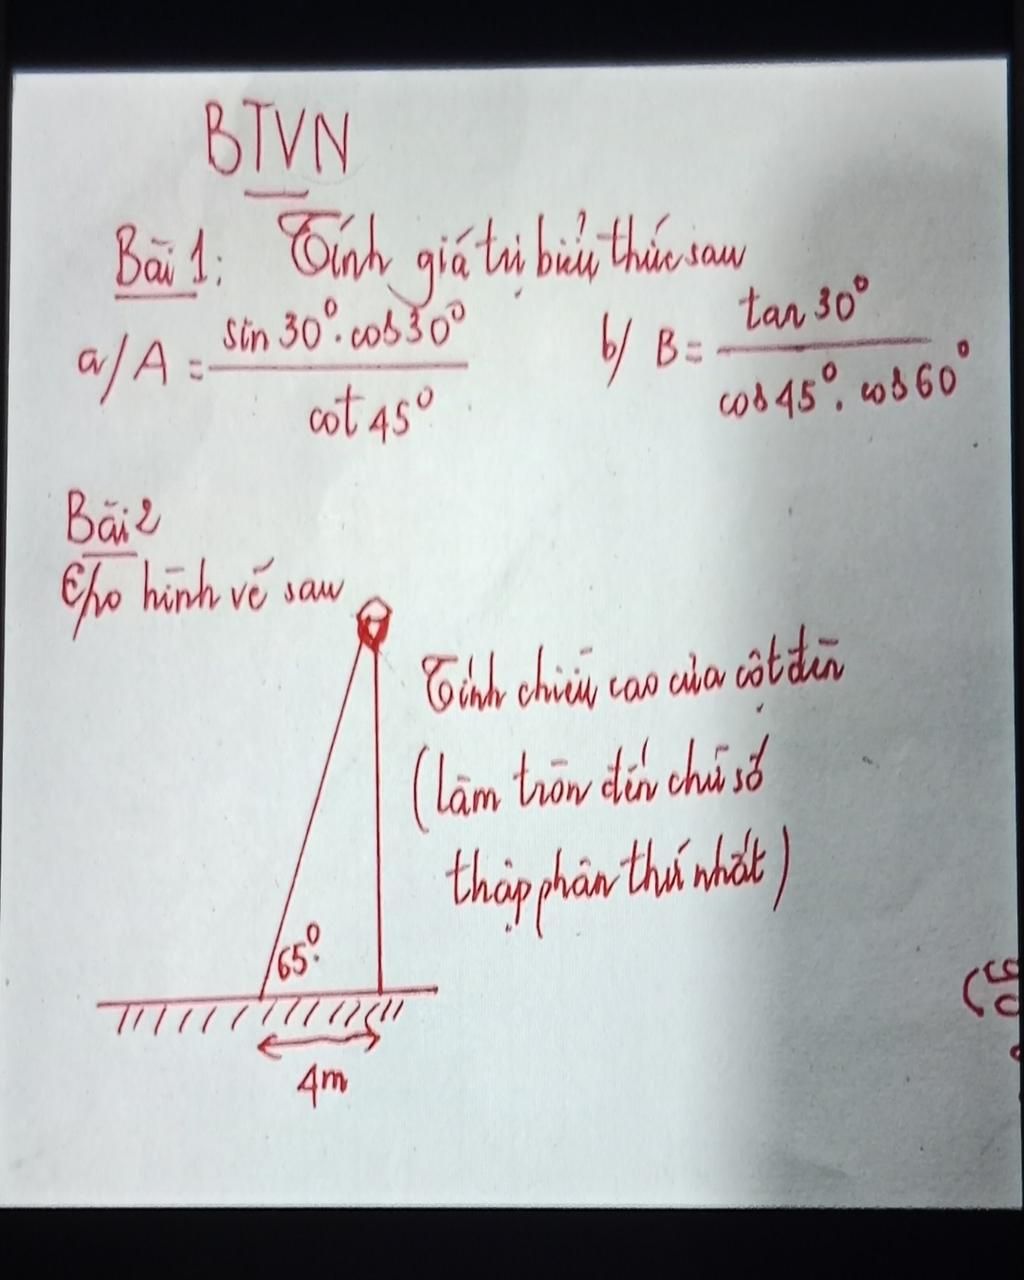 BTVN
Bài 1: Tính giá trị biểu thức sau
a/ A = sin 30°. cos 30° / cot 45°
b/ B = tan 30° / cos 45°. cos 60°
Bài 2
Cho hình vẽ sau
Tính chiều cao của cột đèn
(làm tròn đến chữ số
thập phân thứ nhất)
65°
4m